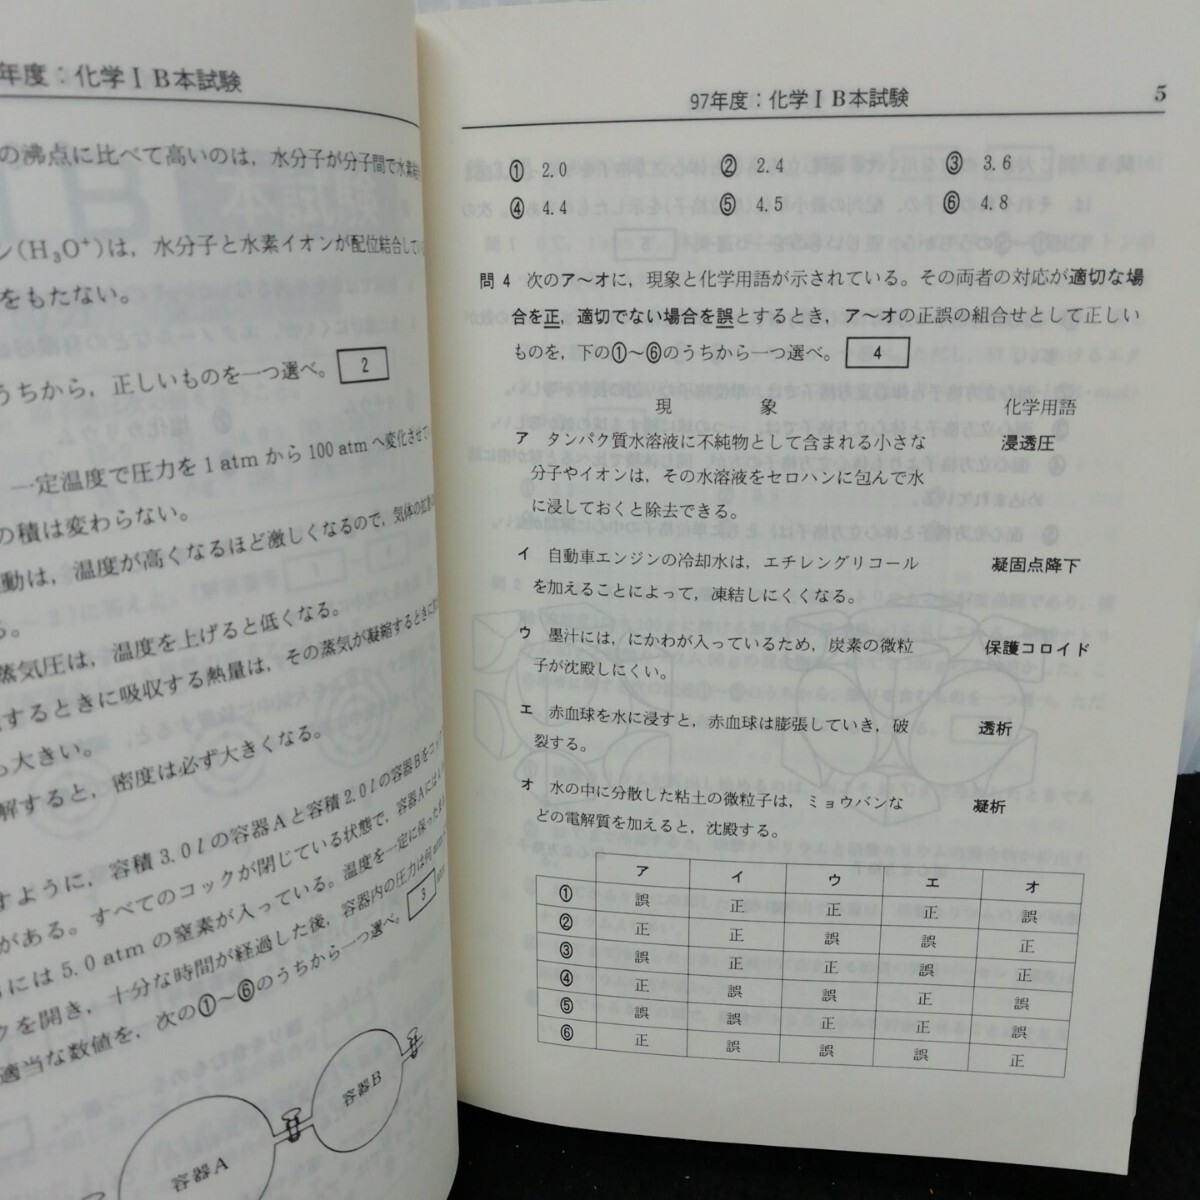 年度：化学ⅠB本試験
の沸点に比べて高いのは，水分子が分子間で水素結
ン(H₃O⁺)は，水分子と水素イオンが配位結合してい
をもたない。
うちから，正しいものを一つ選べ。 2
一定温度で圧力を1 atmから100 atmへ変化させて
の積は変わらない。
動は，温度が高くなるほど激しくなるので，気体の拡散
る。
蒸気圧は，温度を上げると低くなる。
するときに吸収する熱量は，その蒸気が凝縮するときに
も大きい。
解すると，密度は必ず大きくなる。
すように，容積3.0 lの容器Aと容積2.0 lの容器Bをコッ
がある。すべてのコックが閉じている状態で，容器Aには
には5.0 atmの窒素が入っている。温度を一定に保ったま
クを開き，十分な時間が経過した後，容器内の圧力は何
適当な数値を，次の①〜⑥のうちから一つ選べ。 3
容器A
容器B
97年度：化学ⅠB本試験 5
① 2.0 ② 2.4 ③ 3.6
④ 4.4 ⑤ 4.5 ⑥ 4.8
問4 次のア〜オに，現象と化学用語が示されている。その両者の対応が適切な場
合を正，適切でない場合を誤とするとき，ア〜オの正誤の組合せとして正しい
ものを，下の①〜⑥のうちから一つ選べ。 4
現 象 化学用語
ア タンパク質水溶液に不純物として含まれる小さな 浸透圧
分子やイオンは，その水溶液をセロハンに包んで水
に浸しておくと除去できる。
イ 自動車エンジンの冷却水は，エチレングリコール 凝固点降下
を加えることによって，凍結しにくくなる。
ウ 墨汁には，にかわが入っているため，炭素の微粒 保護コロイド
子が沈殿しにくい。
エ 赤血球を水に浸すと，赤血球は膨張していき，破 透析
裂する。
オ 水の中に分散した粘土の微粒子は，ミョウバンな 凝析
どの電解質を加えると，沈殿する。
ア イ ウ エ オ
① 誤 正 正 正 誤
② 正 正 誤 誤 正
③ 誤 正 正 誤 正
④ 正 誤 誤 正 誤
⑤ 誤 誤 正 正 誤
⑥ 正 誤 誤 誤 正